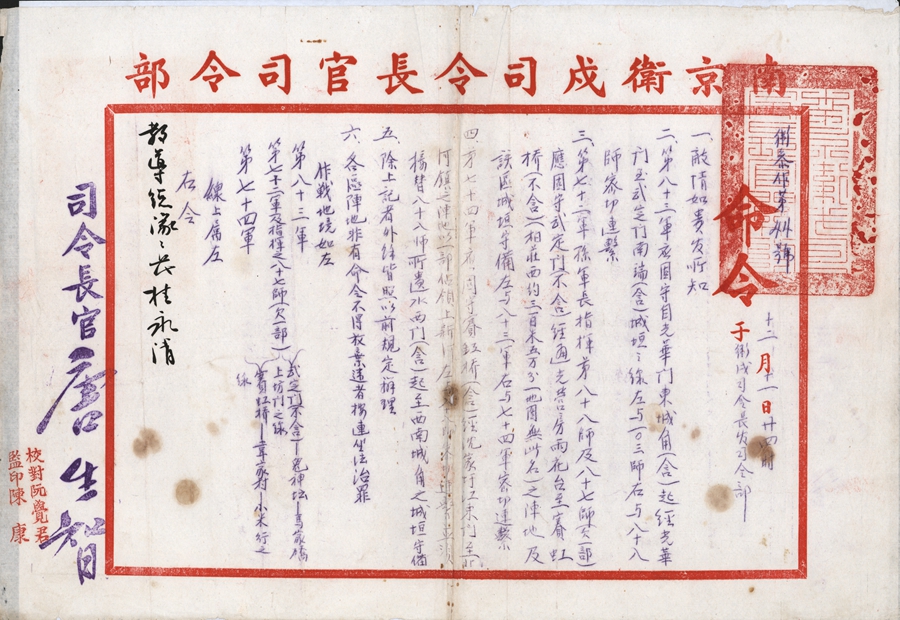 南京衛戍司令長官司令部
衛參作第卅號
命令
十二月十一日廿四時
于衛戍司令長官司令部
一、敵情如貴官所知
二、第八十三軍應固守自光華門東城角(含)起經光華
門至武定門南端(含)城垣之線左與一〇三師右與八十八
師密切連繫
三、第七十二軍孫軍長指揮第八十八師及八十七師(欠一部)
應固守武定門(不含)經通光營房雨花台至賽虹
橋(不含)(相庄西約三百米五万分一地圖無此名)之陣地及
該區城垣守備左與八十三軍右與七十四軍密切連繫
四、第七十四軍應固守賽虹橋(含)經沈家圩江東門至
河鎮之陣地以一部佔領上新河
接替八十八師所遺水西門(含)起至西南城角之城垣守備
五、除上記者外餘皆照以前規定辦理
六、各區陣地非有命令不得放棄違者按連坐法治罪
作戰地境如左
第八十三軍
第七十二軍及指揮之八十七師(欠一部)
第七十四軍
武定門(不含)—鬼神坛—高橋
上坊門之線
賽虹橋——小米行之
線
線上屬左
右令
教導總隊隊長桂永清
司令長官唐生智
校對阮覺君
監印陳康